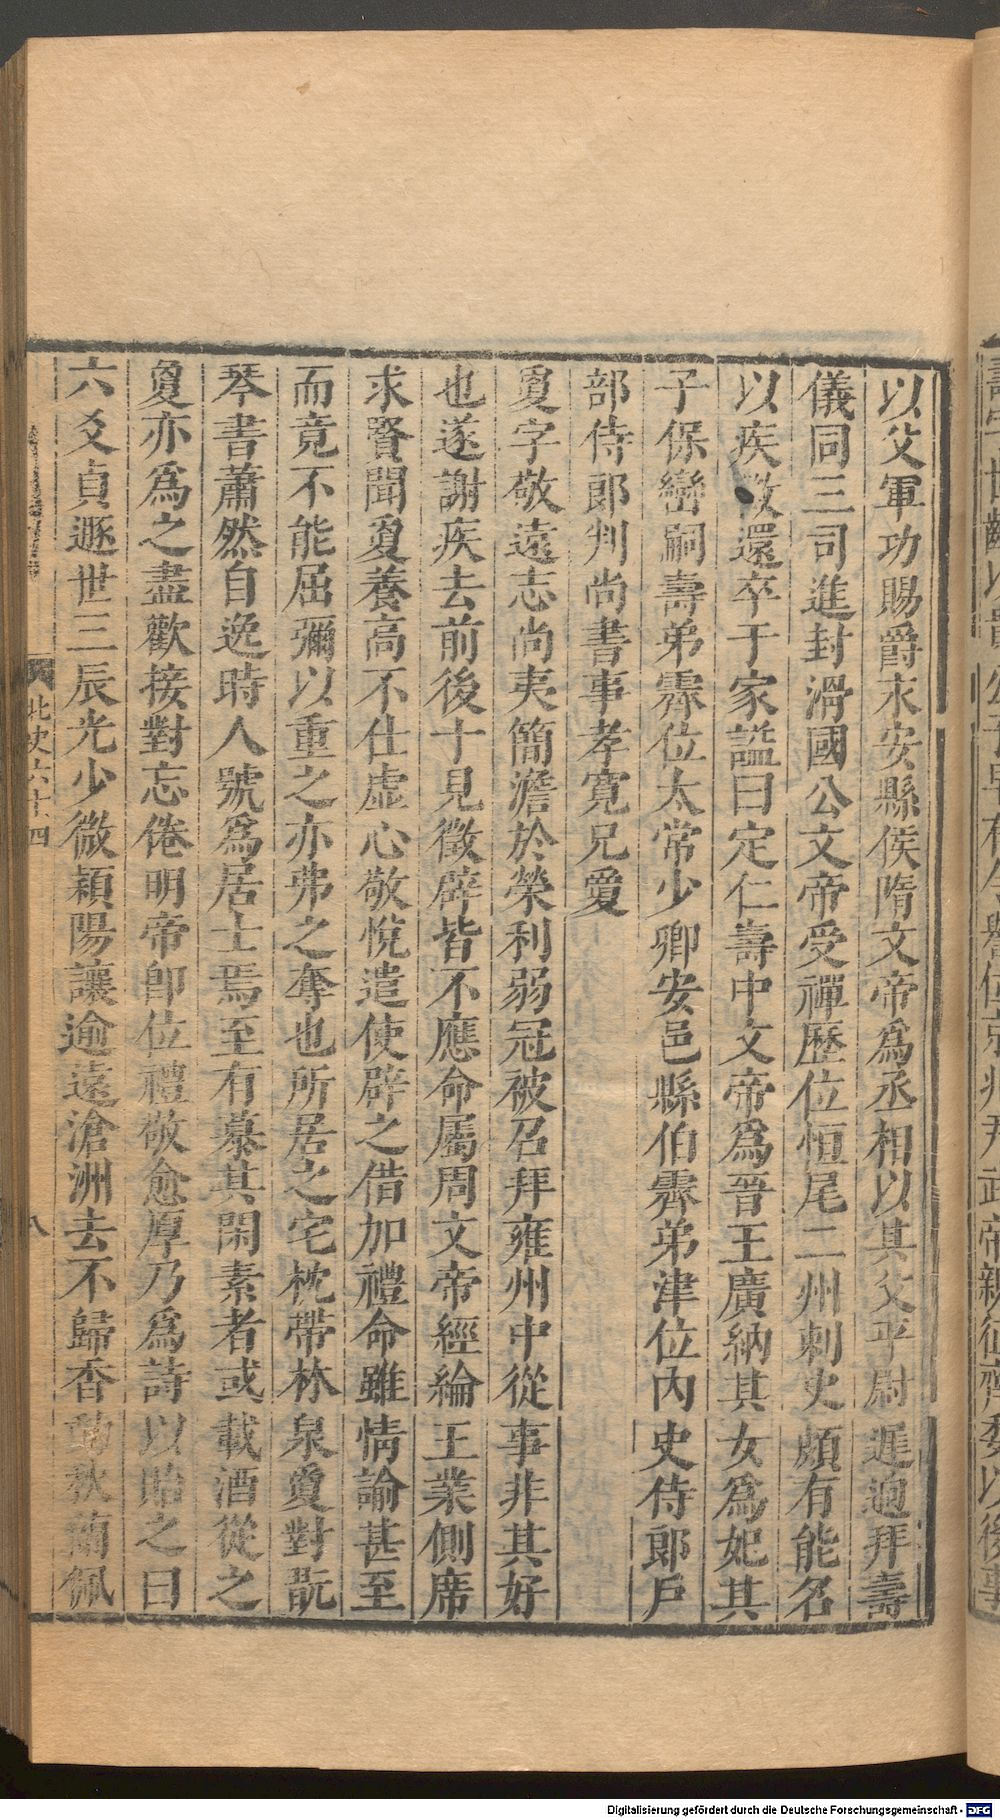 以父軍功賜爵永安縣侯隋文帝爲丞相以其父平尉遲迥拜壽
儀同三司進封滑國公文帝受禪歷位恒尾二州刺史頗有能名
以疾徵還卒于家謚曰定仁壽中文帝爲晉王廣納其女爲妃其
子保巒嗣壽弟霽位太常少卿安邑縣伯霽弟津位內史侍郎戶
部侍郎判尚書事孝寬兄敻
敻字敬遠志尚夷簡澹於榮利弱冠被召拜雍州中從事非其好
也遂謝疾去前後十見徵辟皆不應命屬周文帝經綸王業側席
求賢聞敻養高不仕虛心敬悅遣使辟之借加禮命雖情諭甚至
而竟不能屈彌以重之亦弗之奪也所居之宅枕帶林泉敻對翫
琴書蕭然自逸時人號爲居士焉至有慕其閑素者或載酒從之
敻亦爲之盡歡接對忘倦明帝卽位禮敬愈厚乃爲詩以貽之曰
六爻貞遯世三辰光少微潁陽讓逾遠滄洲去不歸香動秋蘭佩
北史六十四
八
Digitalisierung gefördert durch die Deutsche Forschungsgemeinschaft - DFG